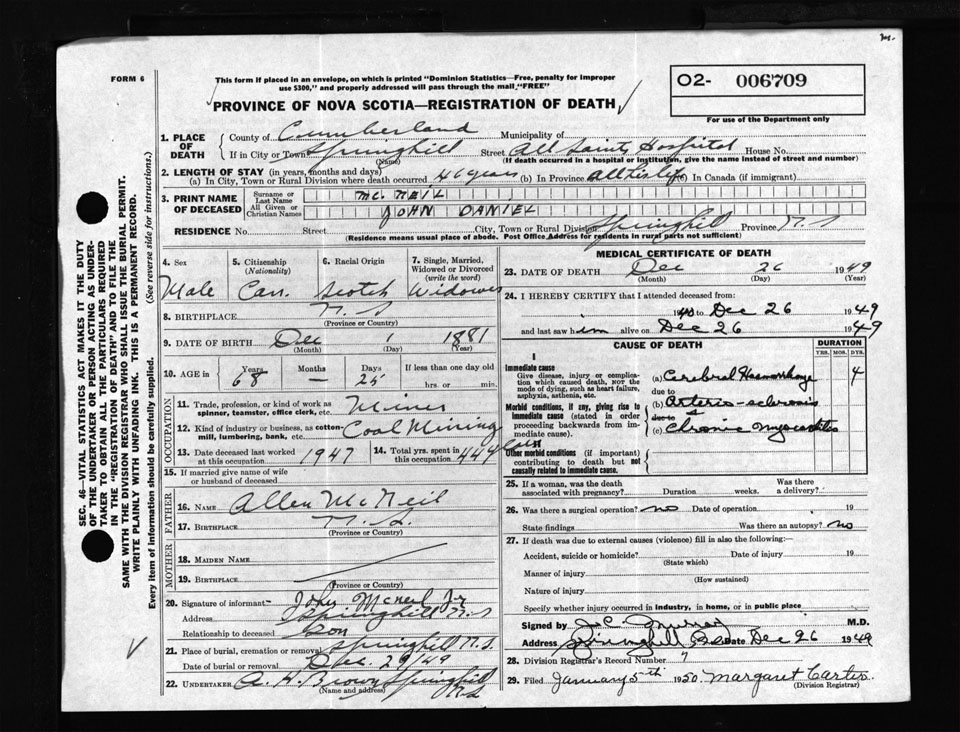 m.
FORM 6
This form if placed in an envelope, on which is printed "Dominion Statistics—Free, penalty for improper
use $300," and properly addressed will pass through the mail "FREE"
PROVINCE OF NOVA SCOTIA—REGISTRATION OF DEATH
O2- 006709
For use of the Department only
SEC. 46—VITAL STATISTICS ACT MAKES IT THE DUTY
OF THE UNDERTAKER OR PERSON ACTING AS UNDER-
TAKER TO OBTAIN ALL THE PARTICULARS REQUIRED
IN THE "REGISTRATION OF DEATH" AND TO FILE THE
SAME WITH THE DIVISION REGISTRAR WHO SHALL ISSUE THE BURIAL PERMIT.
WRITE PLAINLY WITH UNFADING INK. THIS IS A PERMANENT RECORD.
Every item of information should be carefully supplied. (See reverse side for instructions.)
1. PLACE OF DEATH County of Cumberland Municipality of
If in City or Town Springhill (Name) Street All Saints Hospital House No.
(If death occurred in a hospital or institution, give the name instead of street and number)
2. LENGTH OF STAY (in years, months and days)
(a) In City, Town or Rural Division where death occurred 46 years (b) In Province all his life (c) In Canada (if immigrant)
3. PRINT NAME OF DECEASED Surname or Last Name Mc. NEIL
All Given or Christian Names JOHN DANIEL
RESIDENCE No. Street City, Town or Rural Division Springhill Province N.S
(Residence means usual place of abode. Post Office Address for residents in rural parts not sufficient)
4. Sex Male
5. Citizenship (Nationality) Can.
6. Racial Origin Scotch
7. Single, Married, Widowed or Divorced (write the word) Widower
8. BIRTHPLACE N.S
(Province or Country)
9. DATE OF BIRTH Dec 1 1881
(Month) (Day) (Year)
10. AGE in Years 68 Months — Days 25 If less than one day old hrs. or min.
OCCUPATION
11. Trade, profession or kind of work as spinner, teamster, office clerk, etc. Miner
12. Kind of industry or business, as cotton-mill, lumbering, bank, etc. Coal Mining
13. Date deceased last worked at this occupation 1947 14. Total yrs. spent in this occupation 44 years
15. If married give name of wife or husband of deceased
FATHER
16. NAME Allen McNeil
17. BIRTHPLACE N.S.
(Province or Country)
MOTHER
18. MAIDEN NAME
19. BIRTHPLACE
(Province or Country)
20. Signature of informant John Mcneil Jr
Address Springhill N.S
Relationship to deceased Son
21. Place of burial, cremation or removal Springhill N.S.
Date of burial or removal Dec. 29/49
22. UNDERTAKER A. H. Brown Springhill N.S
(Name and address)
MEDICAL CERTIFICATE OF DEATH
23. DATE OF DEATH Dec 26 1949
(Month) (Day) (Year)
24. I HEREBY CERTIFY that I attended deceased from:
19 to Dec 26 1949
and last saw him alive on Dec 26 1949
CAUSE OF DEATH DURATION
YRS. MOS. DYS.
I
Immediate cause
Give disease, injury or complication which caused death, NOT the mode of dying, such as heart failure, asphyxia, asthenia, etc.
(a) Cerebral Haemorrhage 4
due to
Morbid conditions, if any, giving rise to immediate cause (stated in order proceeding backwards from immediate cause).
(b) Arterio-sclerosis
due to
(c) Chronic myocarditis
II
Other morbid conditions (if important) contributing to death but not causally related to immediate cause.
25. If a woman, was the death associated with pregnancy? Duration weeks. Was there a delivery?
26. Was there a surgical operation? no Date of operation 19
State findings Was there an autopsy? no
27. If death was due to external causes (violence) fill in also the following:—
Accident, suicide or homicide? Date of injury 19
(State which)
Manner of injury
(How sustained)
Nature of injury
Specify whether injury occurred in industry, in home, or in public place
Signed by J. C. Murray M.D.
Address Springhill Date Dec 26 1949
28. Division Registrar's Record Number 7
29. Filed January 5th 1950 Margaret Carter
(Division Registrar)